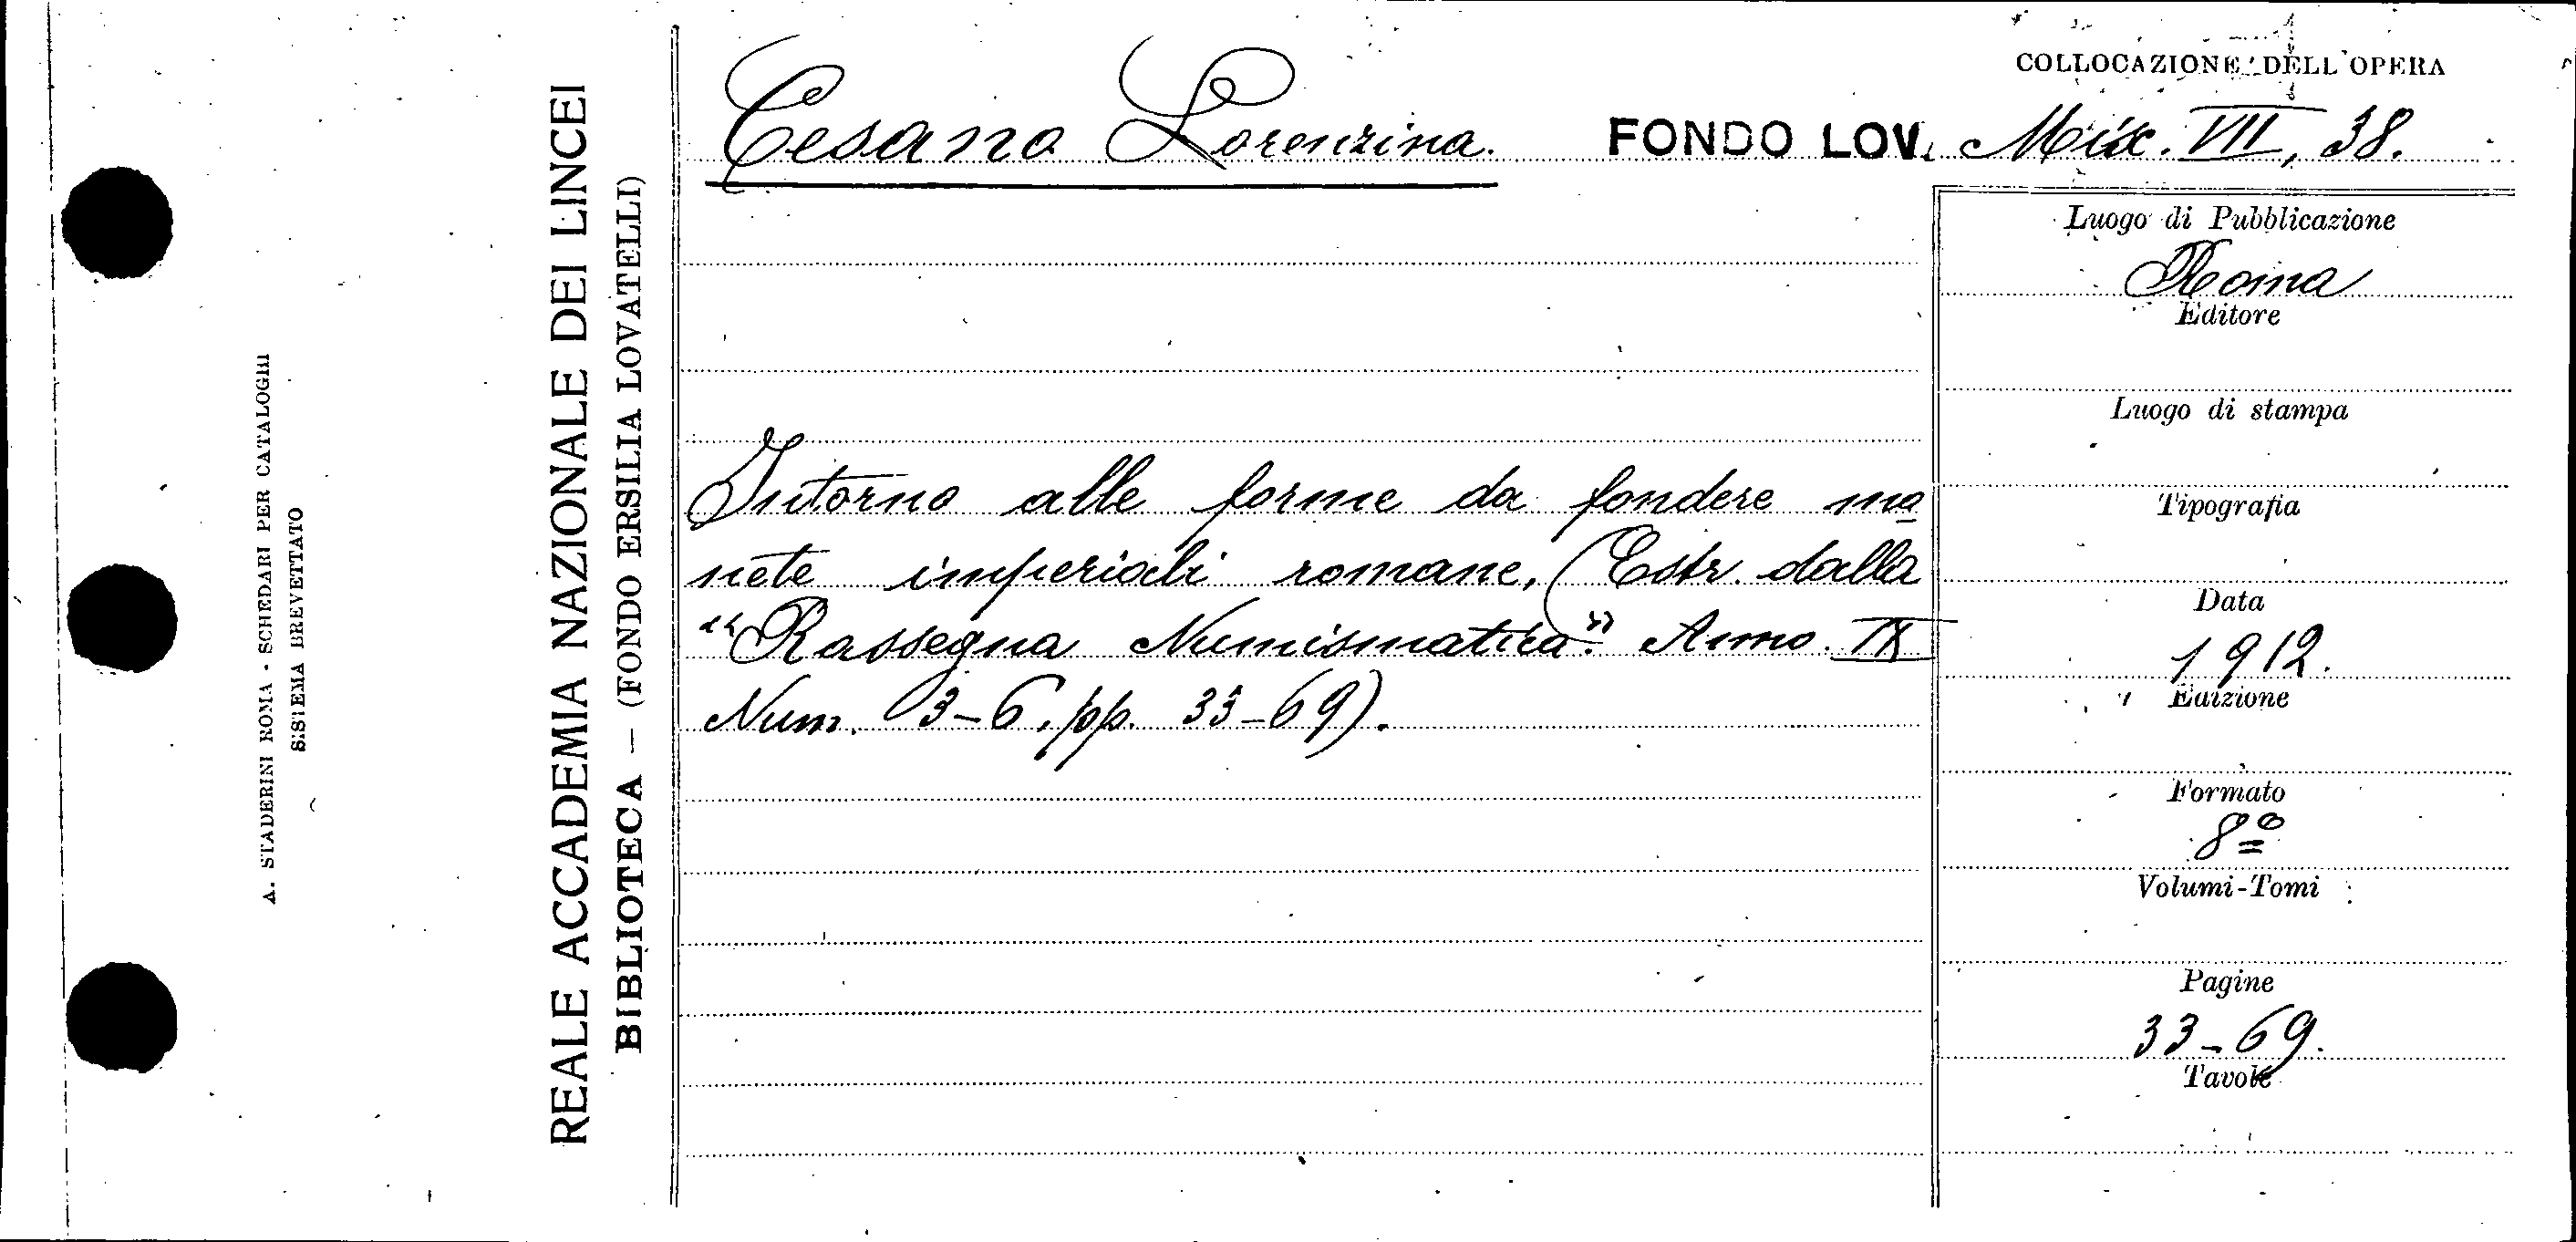 A. STADERINI ROMA - SCHEDARI PER CATALOGHI
SISTEMA BREVETTATO
REALE ACCADEMIA NAZIONALE DEI LINCEI
BIBLIOTECA — (FONDO ERSILIA LOVATELLI)
COLLOCAZIONE DELL'OPERA
Cesano Lorenzina. FONDO LOV. Misc. VII, 38.
Intorno alle forme da fondere mo
nete imperiali romane, (Estr. dalla
"Rassegna Numismatica". Anno. IX
Num. 3-6, pp. 33-69).
Luogo di Pubblicazione
Roma
Editore
Luogo di stampa
Tipografia
Data
1912.
Edizione
Formato
8º
Volumi-Tomi
Pagine
33-69.
Tavole